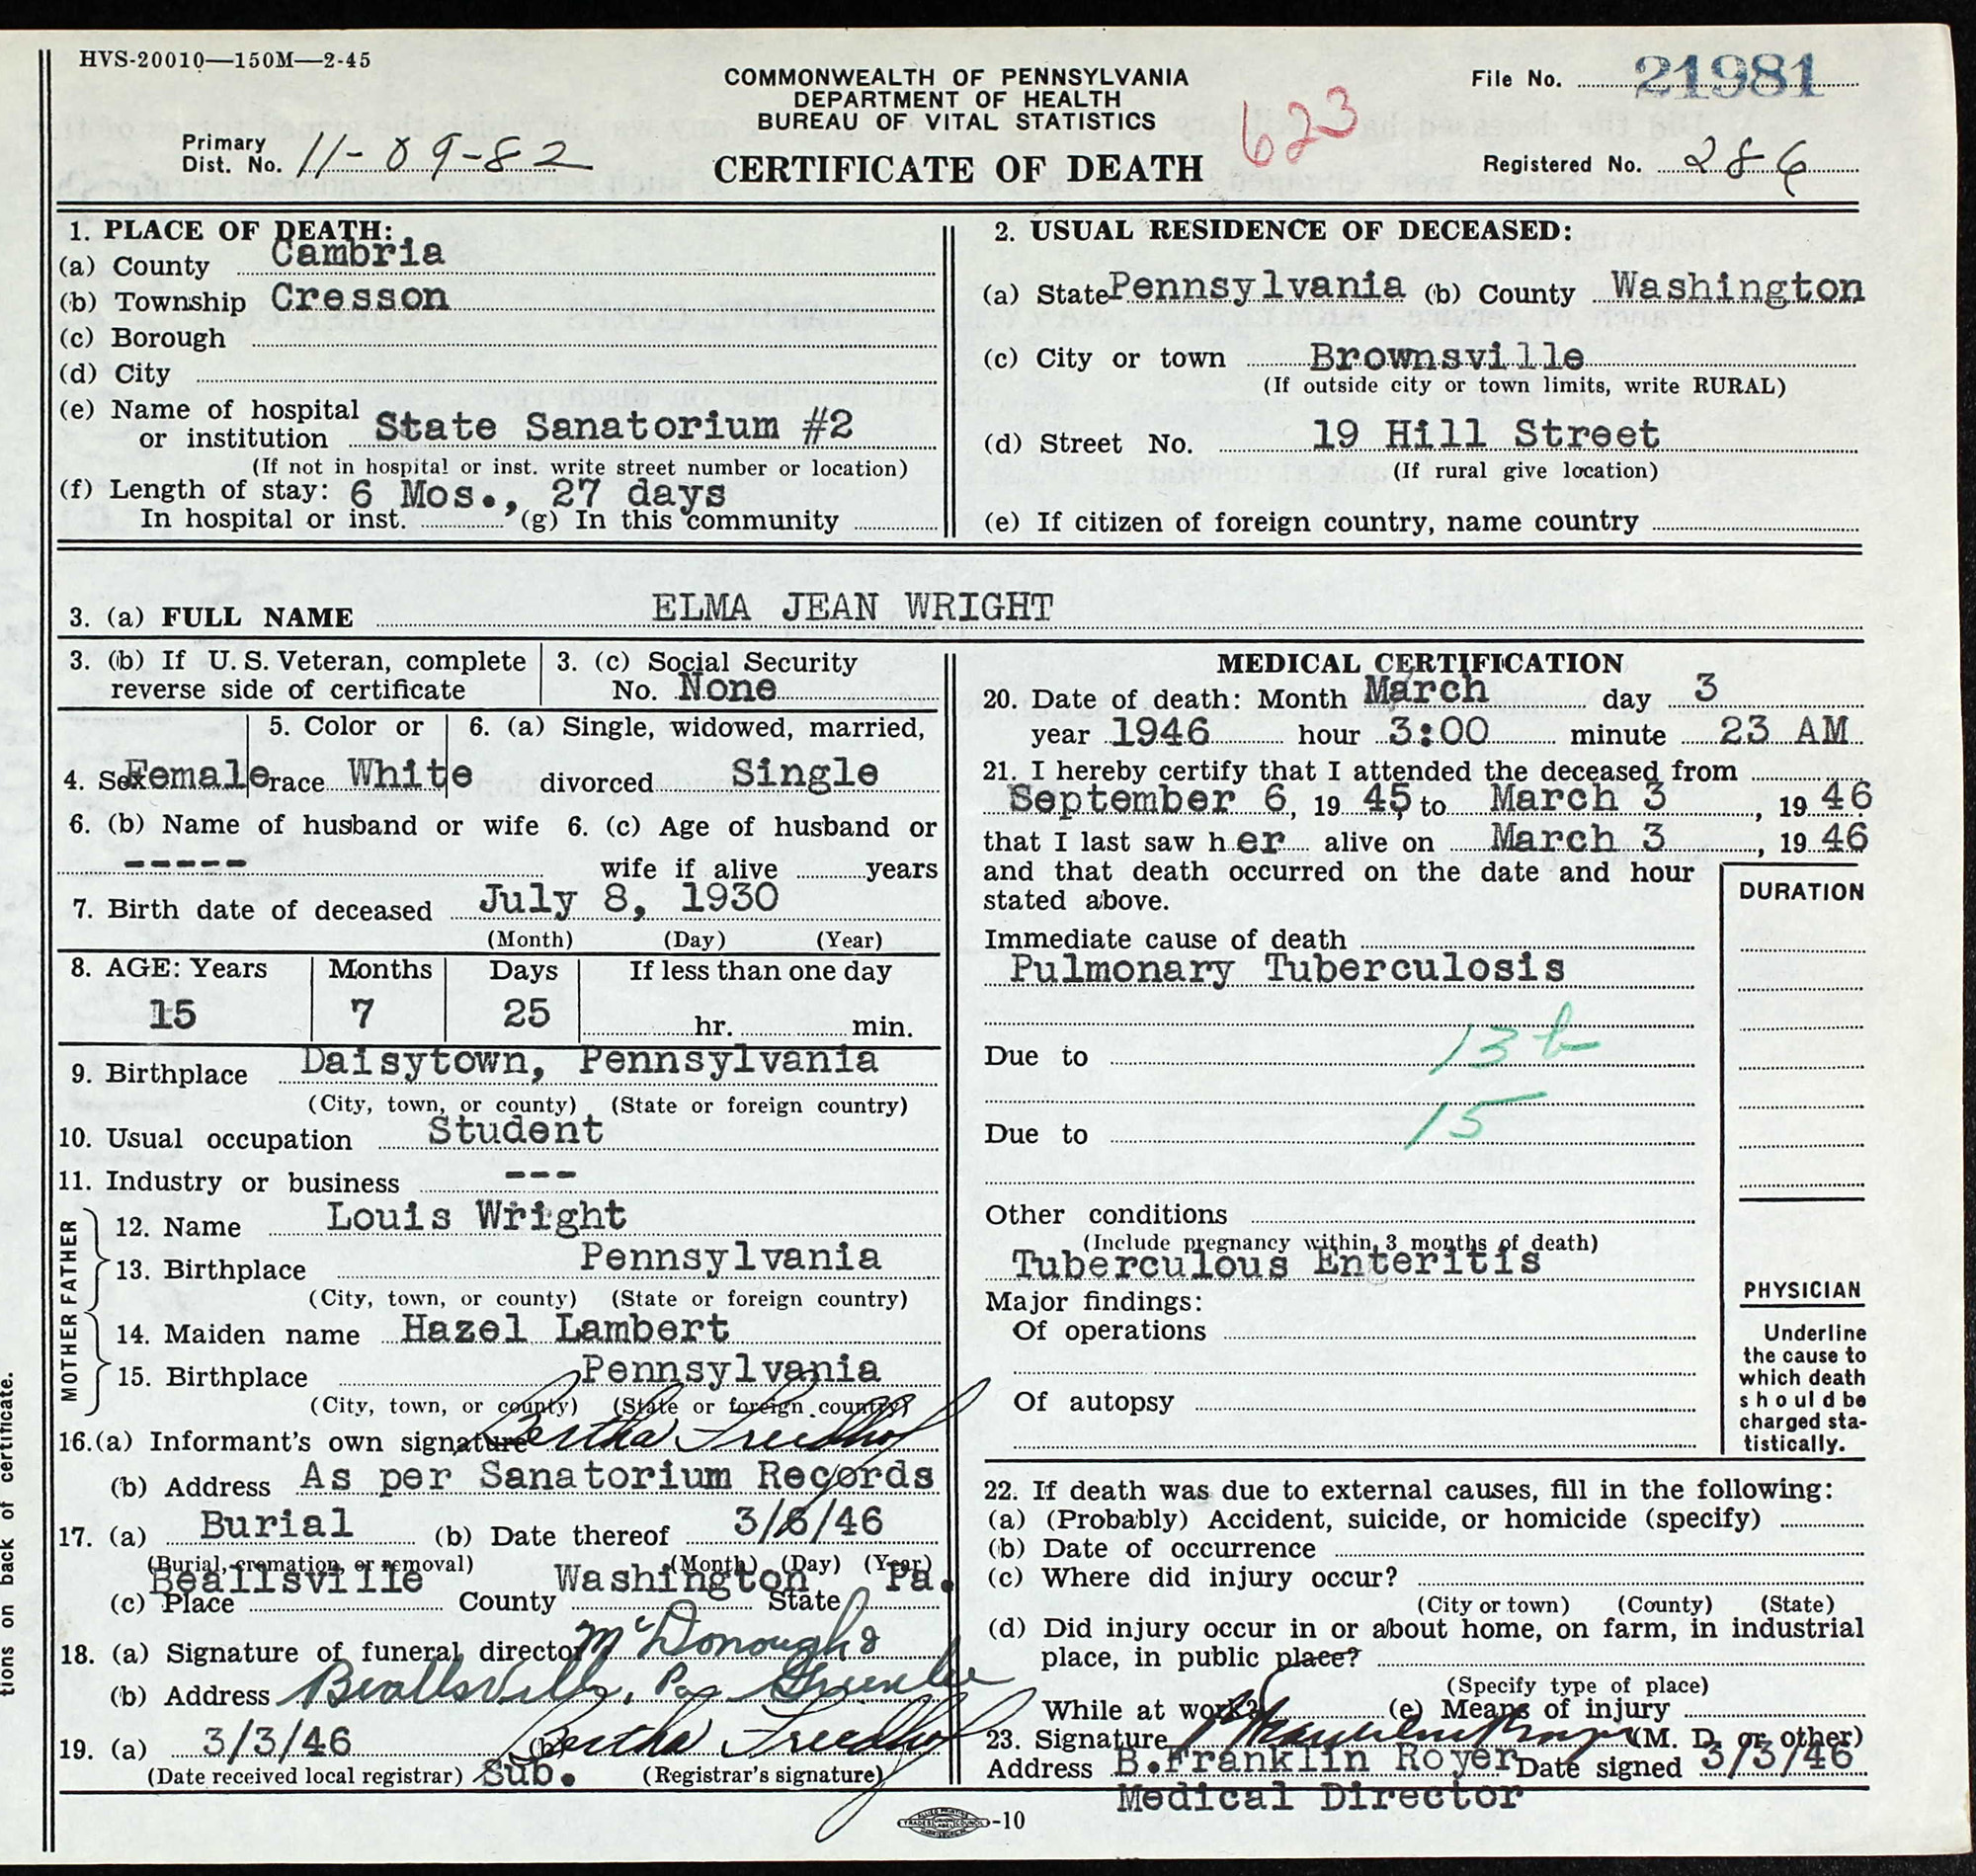 HVS-20010—150M—2-45
COMMONWEALTH OF PENNSYLVANIA
DEPARTMENT OF HEALTH
BUREAU OF VITAL STATISTICS
CERTIFICATE OF DEATH
623
File No. 21981
Primary
Dist. No. 11-09-82
Registered No. 286
1. PLACE OF DEATH:
(a) County Cambria
(b) Township Cresson
(c) Borough
(d) City
(e) Name of hospital
or institution State Sanatorium #2
(If not in hospital or inst. write street number or location)
(f) Length of stay: 6 Mos., 27 days
In hospital or inst. (g) In this community
2. USUAL RESIDENCE OF DECEASED:
(a) State Pennsylvania (b) County Washington
(c) City or town Brownsville
(If outside city or town limits, write RURAL)
(d) Street No. 19 Hill Street
(If rural give location)
(e) If citizen of foreign country, name country
3. (a) FULL NAME ELMA JEAN WRIGHT
3. (b) If U. S. Veteran, complete
reverse side of certificate
3. (c) Social Security
No. None
4. Sex Female
5. Color or
race White
6. (a) Single, widowed, married,
divorced Single
6. (b) Name of husband or wife
-----
6. (c) Age of husband or
wife if alive years
7. Birth date of deceased July 8, 1930
(Month) (Day) (Year)
8. AGE: Years Months Days If less than one day
15 7 25 hr. min.
9. Birthplace Daisytown, Pennsylvania
(City, town, or county) (State or foreign country)
10. Usual occupation Student
11. Industry or business ---
FATHER
12. Name Louis Wright
13. Birthplace Pennsylvania
(City, town, or county) (State or foreign country)
MOTHER
14. Maiden name Hazel Lambert
15. Birthplace Pennsylvania
(City, town, or county) (State or foreign country)
16.(a) Informant's own signature Bertha Freidhof
(b) Address As per Sanatorium Records
17. (a) Burial (b) Date thereof 3/6/46
(Burial, cremation, or removal) (Month) (Day) (Year)
(c) Place Beallsville County Washington State Pa.
18. (a) Signature of funeral director McDonough &
(b) Address Beallsville, Pa Greenlee
19. (a) 3/3/46 (b) Bertha Freidhof
(Date received local registrar) Sub. (Registrar's signature)
MEDICAL CERTIFICATION
20. Date of death: Month March day 3
year 1946 hour 3:00 minute 23 AM
21. I hereby certify that I attended the deceased from
September 6, 19 45 to March 3, 19 46
that I last saw h er alive on March 3, 19 46
and that death occurred on the date and hour
stated above.
DURATION
Immediate cause of death
Pulmonary Tuberculosis
13b
Due to
15
Due to
Other conditions
(Include pregnancy within 3 months of death)
Tuberculous Enteritis
Major findings:
Of operations
Of autopsy
PHYSICIAN
Underline
the cause to
which death
should be
charged sta-
tistically.
22. If death was due to external causes, fill in the following:
(a) (Probably) Accident, suicide, or homicide (specify)
(b) Date of occurrence
(c) Where did injury occur?
(City or town) (County) (State)
(d) Did injury occur in or about home, on farm, in industrial
place, in public place?
(Specify type of place)
While at work? (e) Means of injury
23. Signature (M. D. or other)
Address B.Franklin Royer Date signed 3/3/46
Medical Director
-10
tions on back of certificate.